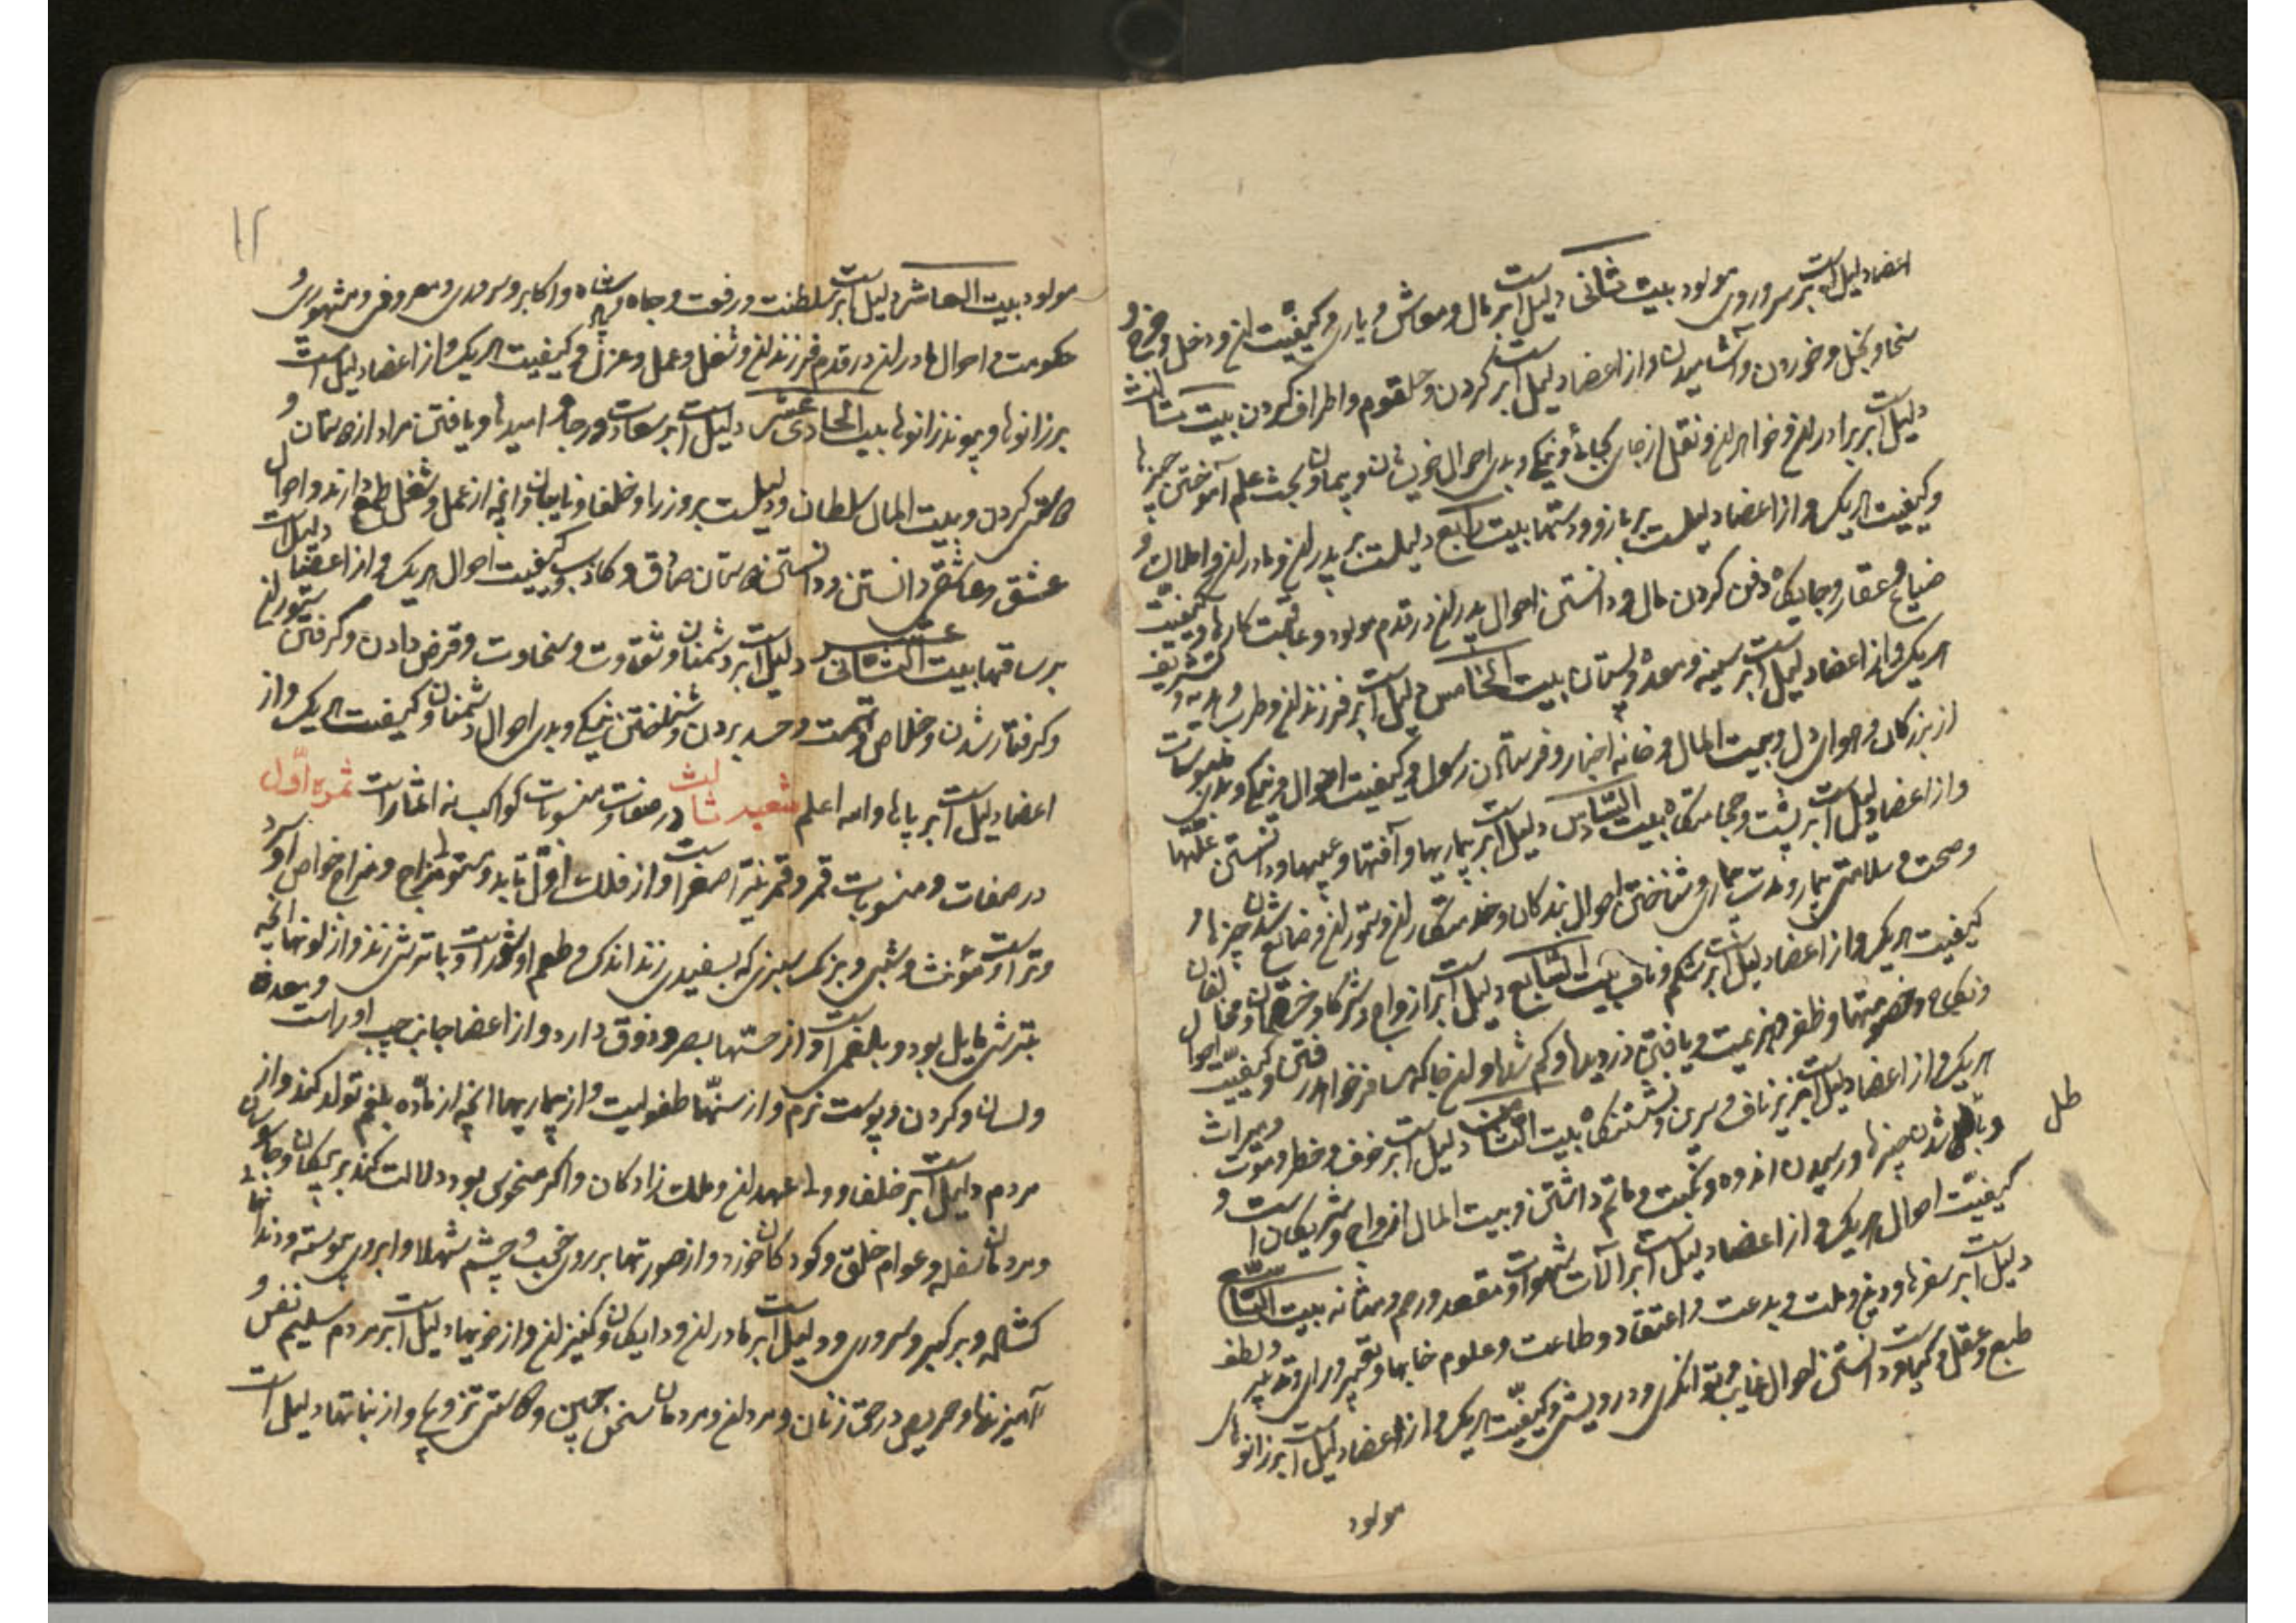 اعضا دلیل است بر سر و روی مولود بیت ثانی دلیل است بر مال و معاش و یاری و کیفیت آن و دخل و خرج و
سخا و بخل و خوردن و آشامیدن و از اعضا دلیل است بر گردن و حلقوم و اطراف گردن بیت ثالث
دلیل است بر برادران و خواهران و نقل از جای بجائی و نیکی و بدی احوال خویشان و پیمان و بحث علم آموختن چیزها
و کیفیت هریک و از اعضا دلیلست بر بازو و دستها بیت رابع دلیلست بر پدران و مادران و املاک و
ضیاع و عقار و جایگاه دفن کردن مال و دانستن احوال پدران در قدم مولود و عاقبت کارها و کیفیت
هریک و از اعضا دلیل است بر سینه و معده و پستان بیت الخامس دلیل است بر فرزندان و طرب و هدیه و تشریف
از بزرگان و هوای دل و بیت المال و خانه اخبار و فرستادن رسول و کیفیت احوال و نیکی و بدی ملبوسات
و از اعضا دلیل است بر پشت و حجامتگاه بیت السادس دلیل است بر بیماریها و آفتها و عیبها و دانستن علتها
و صحت و سلامتی بیمار و مدت بیماری و شناختن احوال بندکان و خدمتکاران و ستوران و ضایع شدن چیزها و
کیفیت هریک و از اعضا دلیل است بر شکم و ناف بیت السابع دلیل است بر ازواج و شرکا و خصمان و مخالفان
و نکاح و خصومتها و ظفر و هزیمت و یافتن دزدیها و کم شدها و آن جا که مسافر خواهد رفتن و کیفیت احوال
هریک و از اعضا دلیل است بر زیر ناف و سرین و نشستنگاه بیت الثامن دلیل است بر خوف و خطر و موت و میراث
و باطل شدن چیزها و رسیدن اندوه و نکبت و ماتم داشتن و بیت المال ازواج و شریکان است و
طل
کیفیت احوال هریک و از اعضا دلیل است بر آلات شهوات و مقعد و رحم و مثانه بیت التاسع
دلیل است بر سفرها و دین و ملت و بدعت و اعتقاد و طاعت و علوم خابها و تعبیر و رای و تدبیر و لطف
طبع و عقل و کیمیا و دانستن احوال غایب و توانگری و درویشی و کیفیت هریک و از اعضا دلیل است بر رانهای
مولود
۱۲
مولود بیت العاشر دلیل است بر سلطنت و رفعت و جاه و پادشاه و اکابر و سروری و معروفی و مشهوری و
حکومت و احوال مادران در قدم فرزندان و شغل و عمل و عزل و کیفیت هریک و از اعضا دلیل است
بر زانوها و پیوند زانوها بیت الحادی عشر دلیل است بر سعادت و رجا و امیدها و یافتن مراد از دوستان و
عاشقی کردن و بیت المال سلطان و دلیلست بر وزرا و خلفا و نایبان و انچه از عمل و شغل طمع دارند و احوال
عشق و عاشقی دانستن و دانستن دوستان صادق و کاذب و کیفیت احوال هریک و از اعضا دلیل است
بر ساقها بیت الثانی عشر دلیل است بر دشمنان و شقاوت و سخاوت و قرض دادن و گرفتن ستوران
و گرفتار شدن و خلاص و تهمت و حسد بردن و شناختن نیکی و بدی احوال دشمنان و کیفیت هریک و از
اعضا دلیل است بر پایها والله اعلم شعبه ثالث در صفات و منسوبات کواکب نه اثمار است ثمره اول
در صفات و منسوبات قمر و قمر نیر اصغر است و از فلک اول تابد و ستوه مزاج و مزاج خواص او سرد
و تر است و مؤنث و شبی و برنگ سبزی که بسفیدی زند اندکی و طعم او شور است و با ترشی زند و از لونها انچه
بترشی مایل بود و بلغمی است و از حسها بصر و ذوق دارد و از اعضا جانب چپ او راست و معده
و لسان و گردن و پوست نرم و از سنها طفولیت و از بیماریها انچه از ماده بلغم تولد کند و از
مردم دلیل است بر خلفا و ولی عهدان و ملک زادکان و اگر منحوس بود دلالت کند بر پیکان و جاسوسان
و مردمان سفله و عوام خلق و کودکان خورد و از صورتها بر روی خوب و چشم شهلا و ابروی پیوسته و دندانها
کشاده و بر کبر و سروری و دلیل است بر مادران و دایگان و کنیزان و از خویها دلیل است بر مردم سلیم نفس و
آمیزنها و حریص در حق زنان و مردان و مردمان سخن چین و عاشق تزویج و از نباتها دلیل است